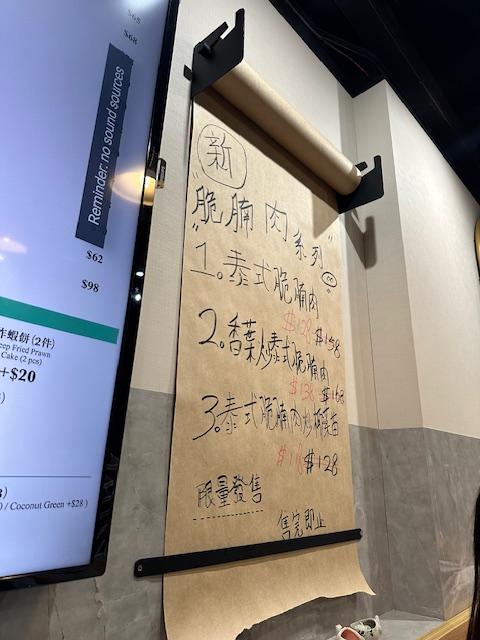 $68
$68
Reminder: no sound sources
$62
$98
炸蝦餅(2件)
eep Fried Prawn
Cake (2 pcs)
+$20
/ Coconut Green +$28 )
新
"脆腩肉系列"
1。泰式脆腩肉
$128 $158
2。香葉炒泰式脆腩肉
$138 $168
3。泰式脆腩肉炒椰菜苗
$118 $128
限量發售
售完即止